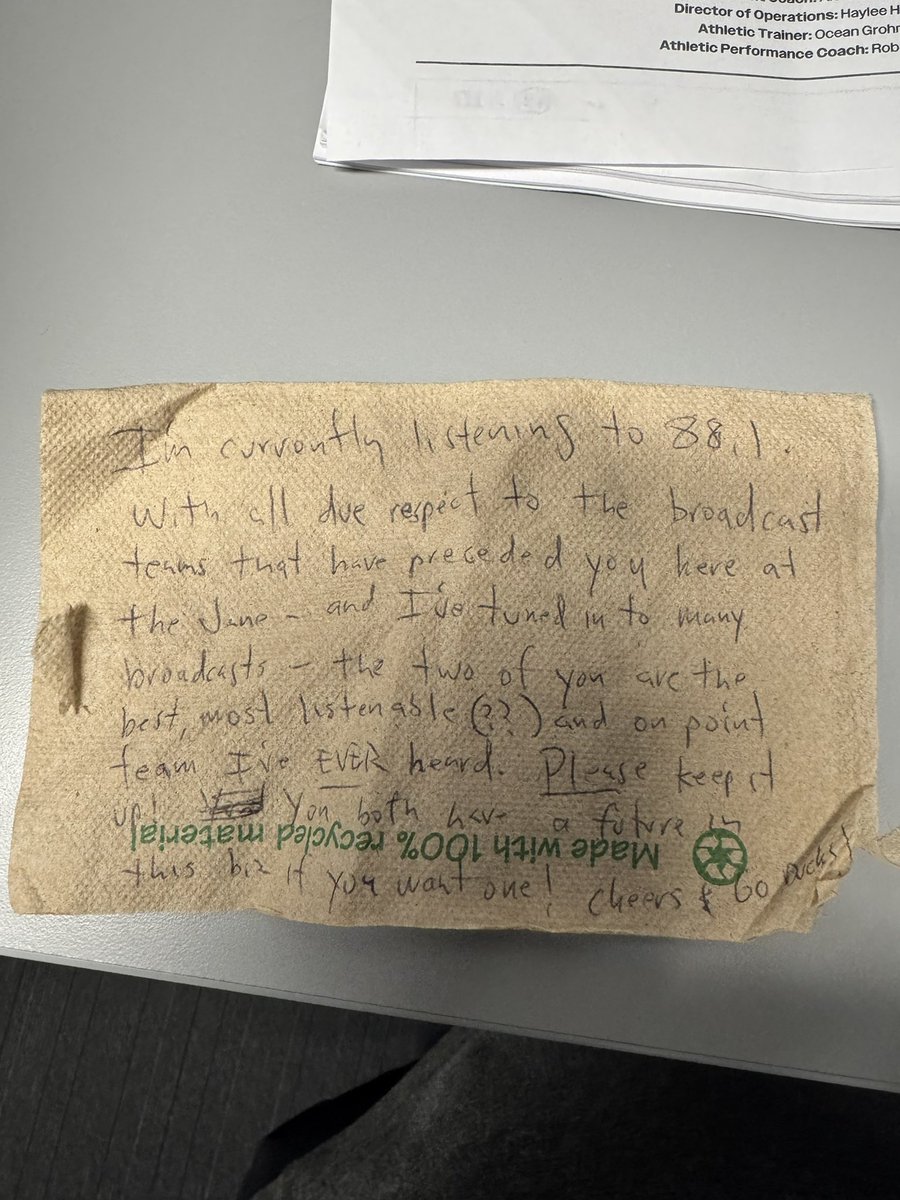 Director of Operations: Haylee H
Athletic Trainer: Ocean Grohn
Athletic Performance Coach: Rob
I'm currently listening to 88.1.
With all due respect to the broadcast
teams that have preceded you here at
the Jane - and I've tuned in to many
broadcasts - the two of you are the
best, most listenable (??) and on point
team I've EVER heard. Please keep it
up! You both have a future in
this biz if you want one! Cheers & Go Ducks!
Made with 100% recycled material